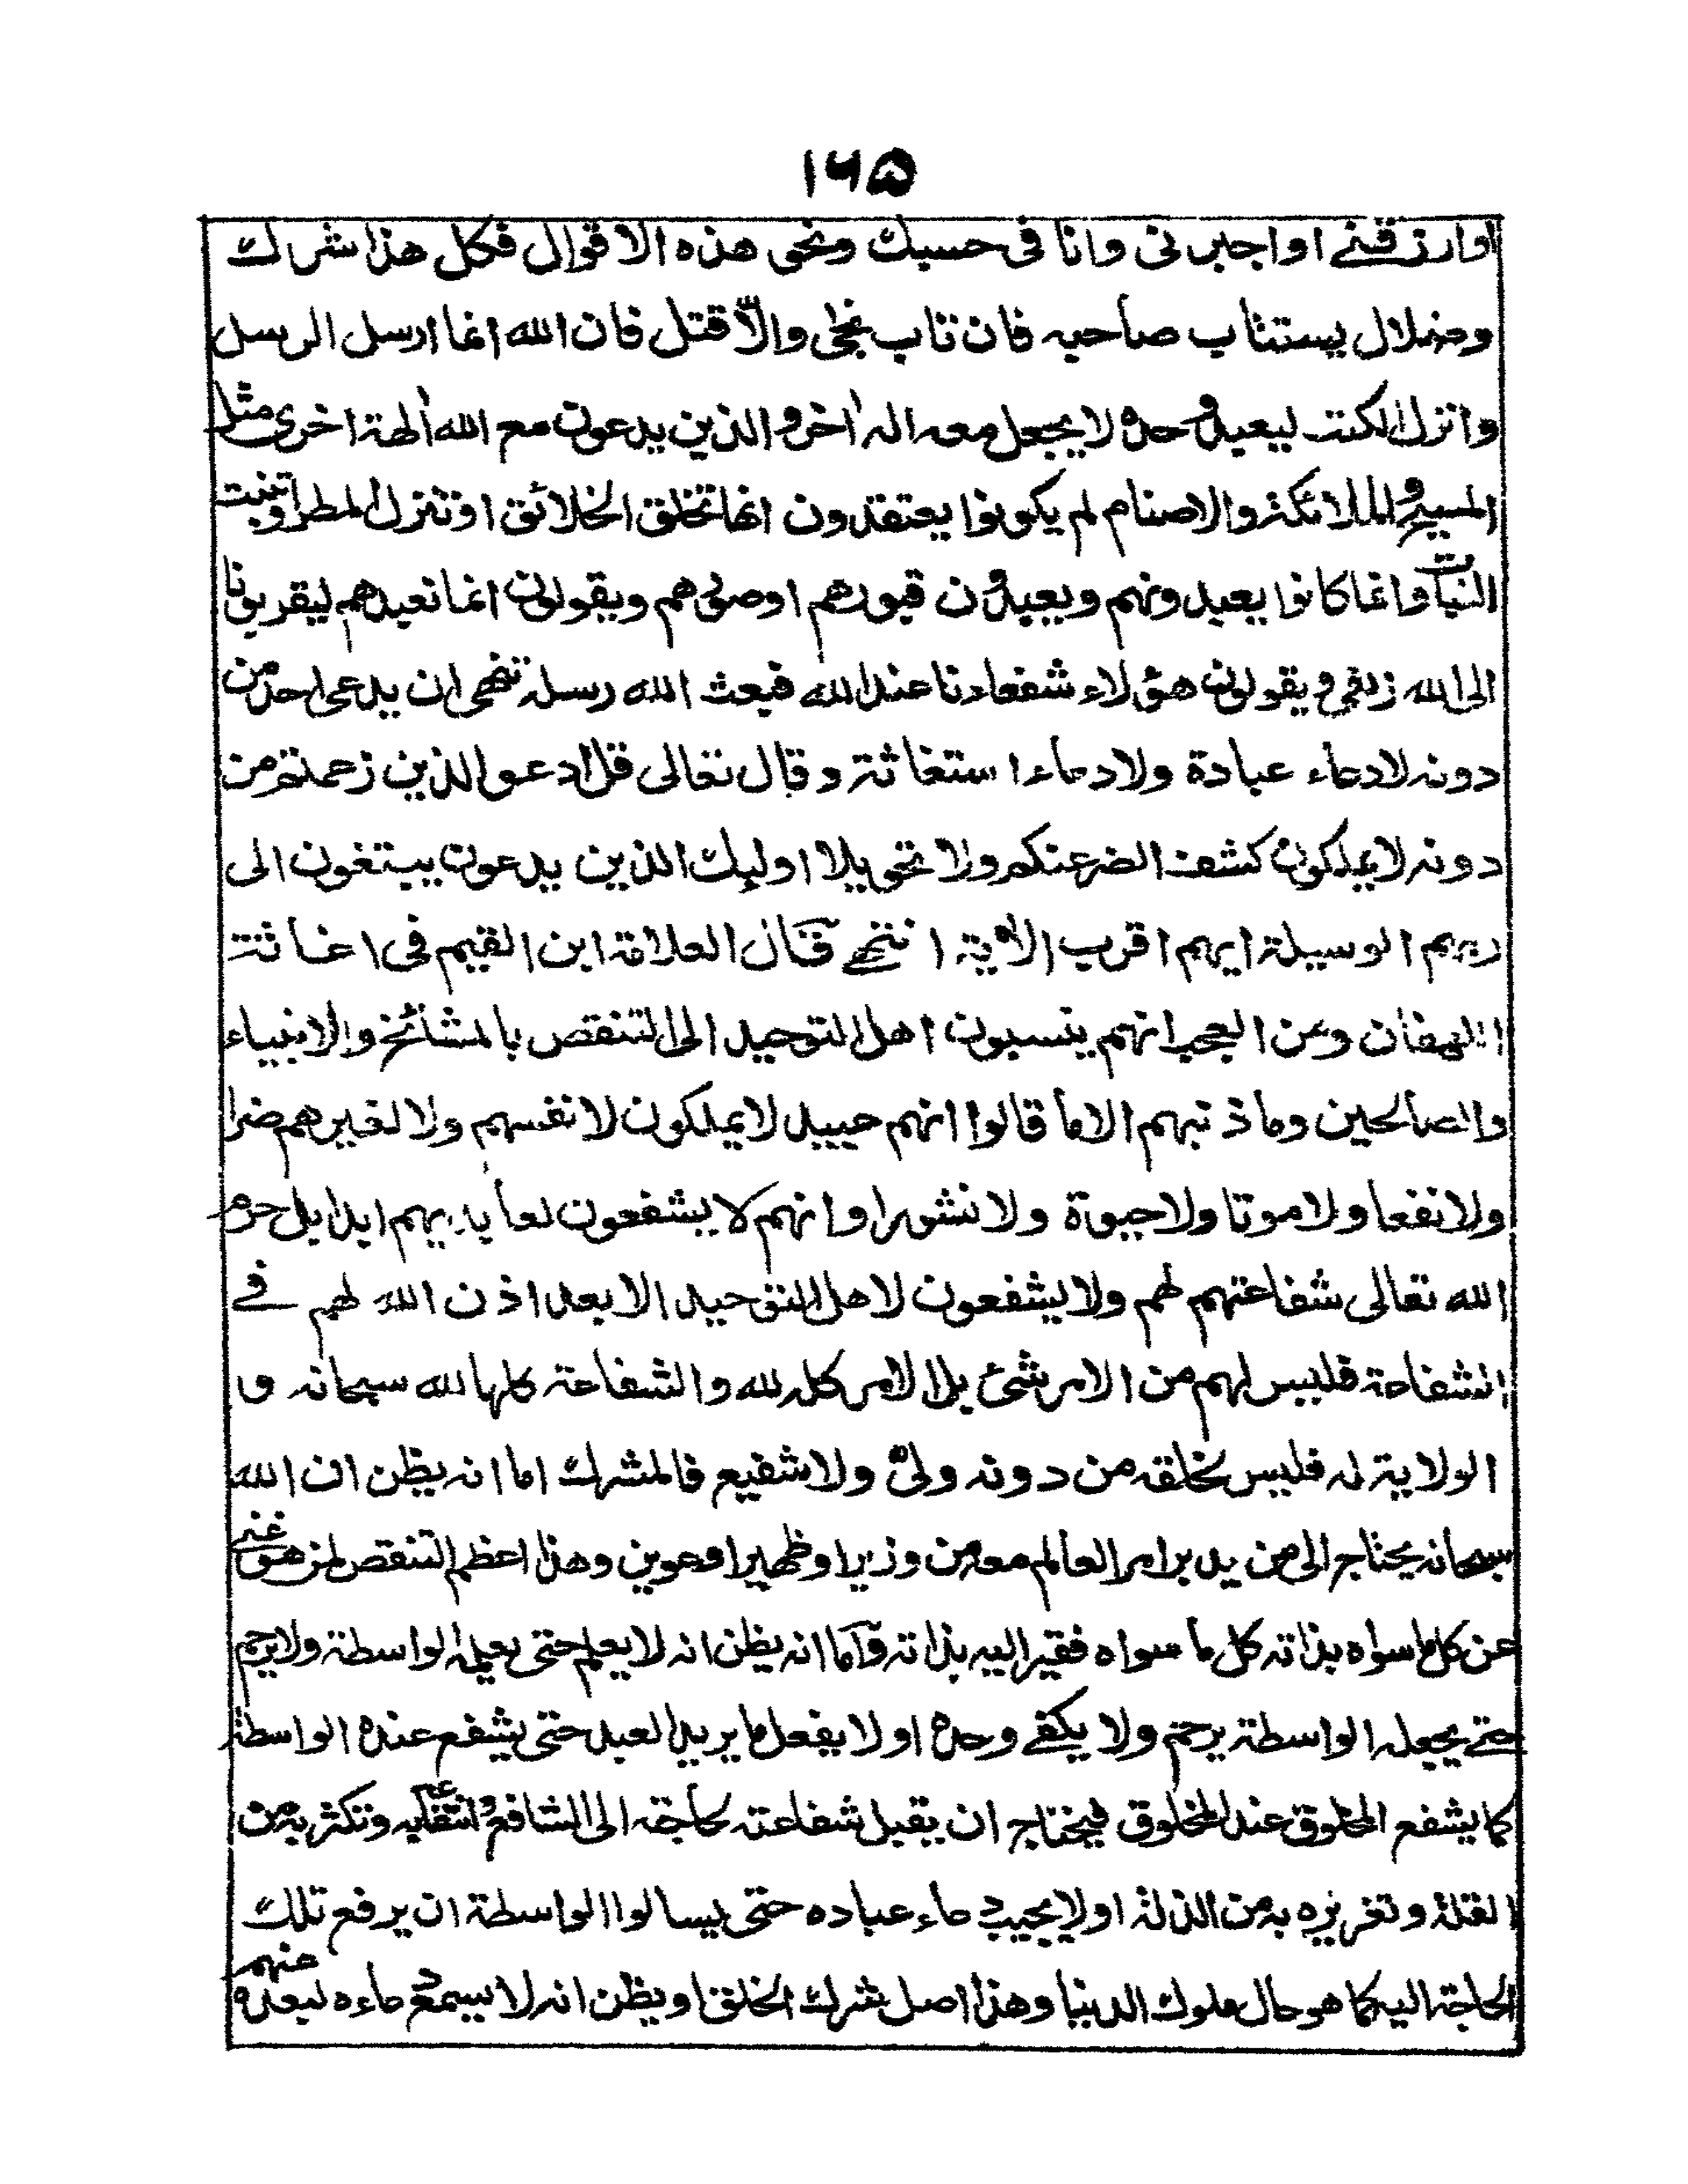 ١٦٥
او ارزقنے او اجبرنی وانا فی حسبك ونحو هذه الاقوال فكل هذا شرك
وضلال يستتاب صاحبه فان تاب نجى والّا قتل فان الله انما ارسل الرسل
وانزل الكتب ليعبد وحده لا يجعل معه الٰه اٰخر والذين يدعون مع الله اٰلهة اخرى مثل
المسيح والملائكة والاصنام لم يكونوا يعتقدون انها تخلق الخلائق او تنزل المطر او تنبت
النبات وانما كانوا يعبدونهم ويعبدون قبورهم او صورهم ويقولون انما نعبدهم ليقربونا
الى الله زلفى ويقولون هؤلاء شفعاءنا عند الله فبعث الله رسله تنهى ان يدعى احد من
دونه لا دعاء عبادة ولا دعاء استغاثة وقال تعالى قل ادعوا الذين زعمتم من
دونه لا يملكون كشف الضر عنكم ولا تحويلا اولئك الذين يدعون يبتغون الى
ربهم الوسيلة ايهم اقرب الاٰية انتهے قال العلامة ابن القيم فی اغاثة
اللهفان ومن العجب انهم ينسبون اهل التوحيد الى التنقص بالمشائخ والانبياء
والصالحين وما ذنبهم الا ما قالوا انهم عبيد لا يملكون لانفسهم ولا لغيرهم ضرا
ولا نفعا ولا موتا ولا حيوة ولا نشورا وانهم لا يشفعون لعابديهم ابدا بل حرم
الله تعالى شفاعتهم لهم ولا يشفعون لاهل التوحيد الا بعد اذن الله لهم فے
الشفاعة فليس لهم من الامر شئ بل الامر كله لله والشفاعة كلها لله سبحانه و
الولاية له فليس لخلقه من دونه ولیّ ولا شفيع فالمشرك اما انه يظن ان الله
سبحانه يحتاج الى من يدبر امر العالم معه من وزير او ظهير او عوين وهذا اعظم التنقص لمن هو غنے
عن كل ما سواه بذاته كل ما سواه فقير اليه بذاته وآما انه يظن انه لا يعلم حتى يعلمه الواسطة ولا يرحم
حتے يجعله الواسطة يرحم ولا يكفے وحده او لا يفعل ما يريد العبد حتى يشفع عنده الواسطة
كما يشفع المخلوق عند المخلوق فيحتاج ان يقبل شفاعته لحاجته الى الشافع وانتفاعه به وتكثره به من
القلة وتعززه به من الذلة او لا يجيب دعاء عباده حتى يسالوا الواسطة ان يرفع تلك
الحاجة اليه كما هو حال ملوك الدنيا وهذا اصل شرك الخلق او يظن انه لا يسمع دعاءه لبعده منهم